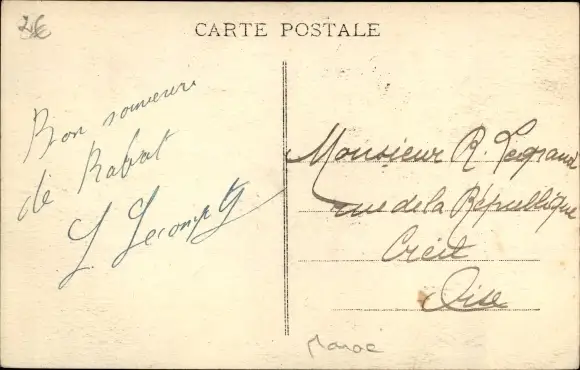 2€
CARTE POSTALE
Bon souvenir
de Rabat
L. Lecompte
Monsieur R. Legrand
rue de la République
Creil
Oise
Maroc